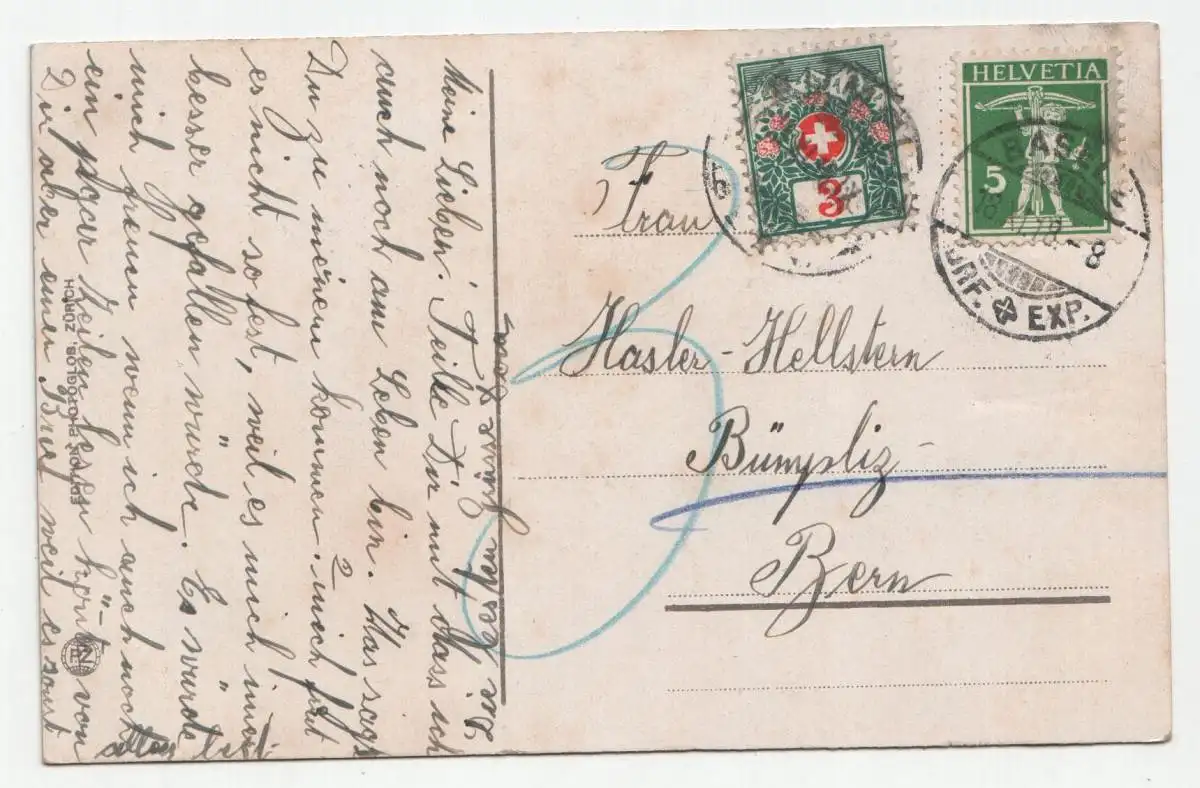 Meine Lieben! Teile Dir mit dass ich
auch noch am Leben bin. Was sagst
Du zu meinem kommen. mich freut
es nicht so fest, weil es mich immer
besser gefallen würde. Es würde
mich freuen wenn ich auch noch
ein paar Zeilen lesen könnte von
Dir aber einen Brief weil es sonst
EDITION PHOTOGLOB, ZÜRICH
PZ
HELVETIA
5
3
BASEL
BRF. EXP.
8
Frau
Hasler-Hellstern
Bümpliz
Bern
3